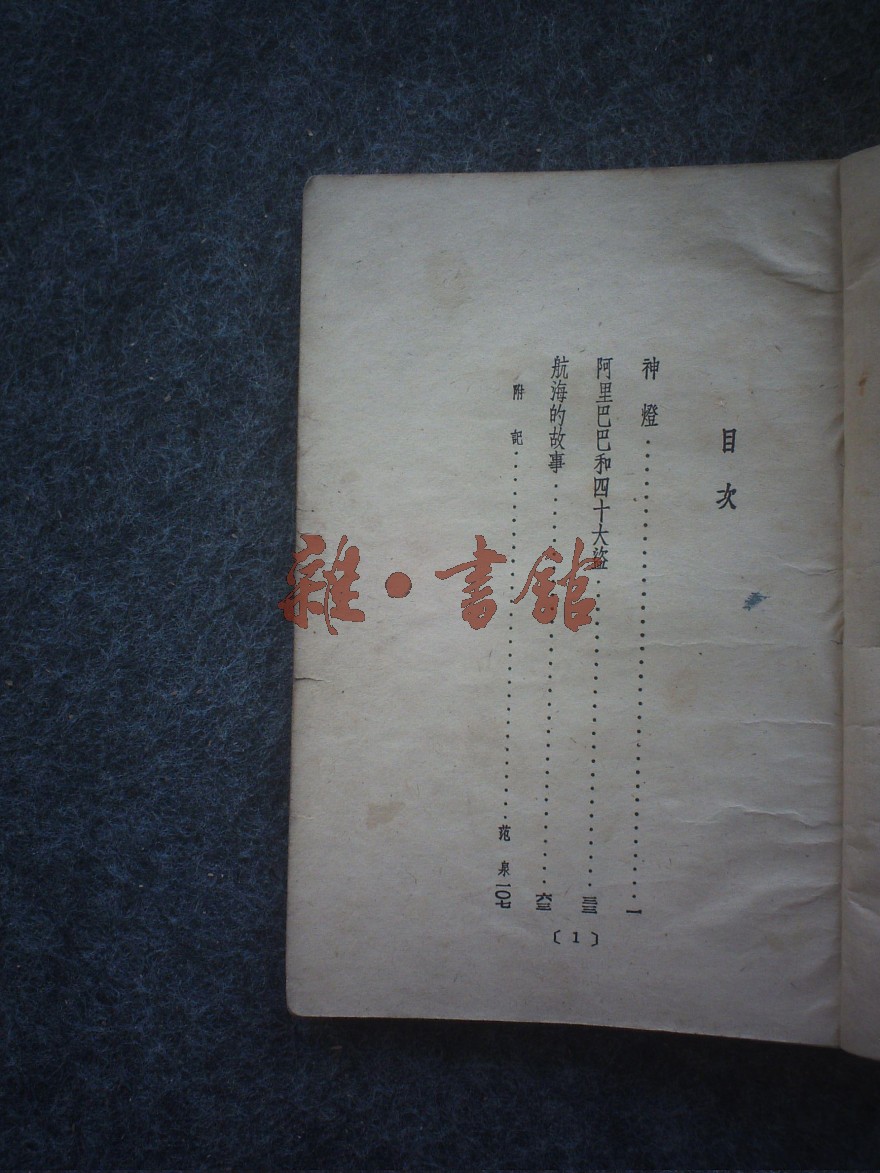 目次
神燈一
阿里巴巴和四十大盜三三
航海的故事六三
附記范泉一〇七
〔1〕
雜·書館